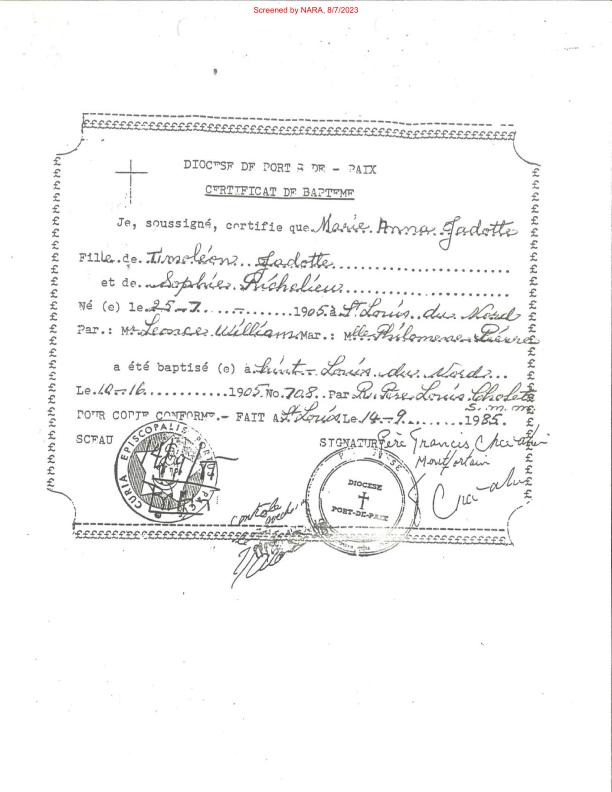 Screened by NARA, 8/7/2023
DIOCESE DE PORT - DE - PAIX
CERTIFICAT DE BAPTEME
Je, soussigné, certifie que Marie Anna Jadotte
Fille de Timoléon Jadotte
et de Sophie Richelieu
Né (e) le 25-7 1905 à St Louis du Nord
Par.: Mr Leonce William Mar.: Mlle Philomene Pierre
a été baptisé (e) à Saint-Louis du Nord
Le 10-16 1905 No. 708 Par R. Père Louis Cholet
s.m.m.
POUR COPIE CONFORME.- FAIT A St Louis Le 14-9 1985.
SCEAU SIGNATURE Père Francis
Montfortain
CURIA EPISCOPALIS PORTUS PACIS
DIOCESE
PORT-DE-PAIX
controle